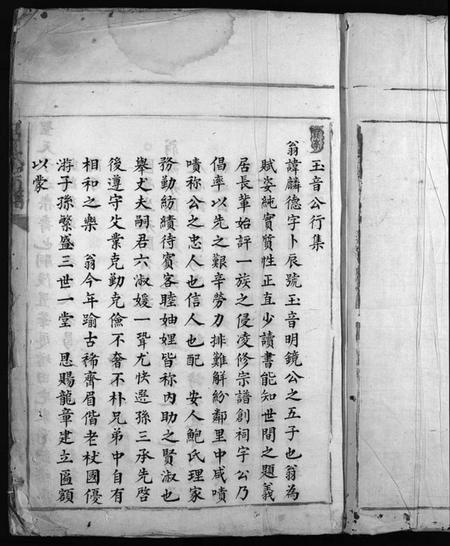 玉音公行集
翁諱麟德字卜辰號玉音明鏡公之五子也翁為
賦姿純實質性正直少讀書能知世間之題義
居長輩始評一族之侵凌修宗譜創祠宇公乃
倡率以先之艱辛勞力排難解紛鄰里中咸嘖
嘖称公之忠人也信人也配 安人鮑氏理家
務勤紡績待賓客睦妯娌皆称內助之賢淑也
舉丈夫嗣君六淑媛一聟尤快遴孫三承先啓
後遵守父業克勤克儉不奢不朴兄弟中自有
相和之樂 翁今年踰古稀齊眉偕老杖國優
游子孫繁盛三世一堂 恩賜龍章建立匾額
以蒙